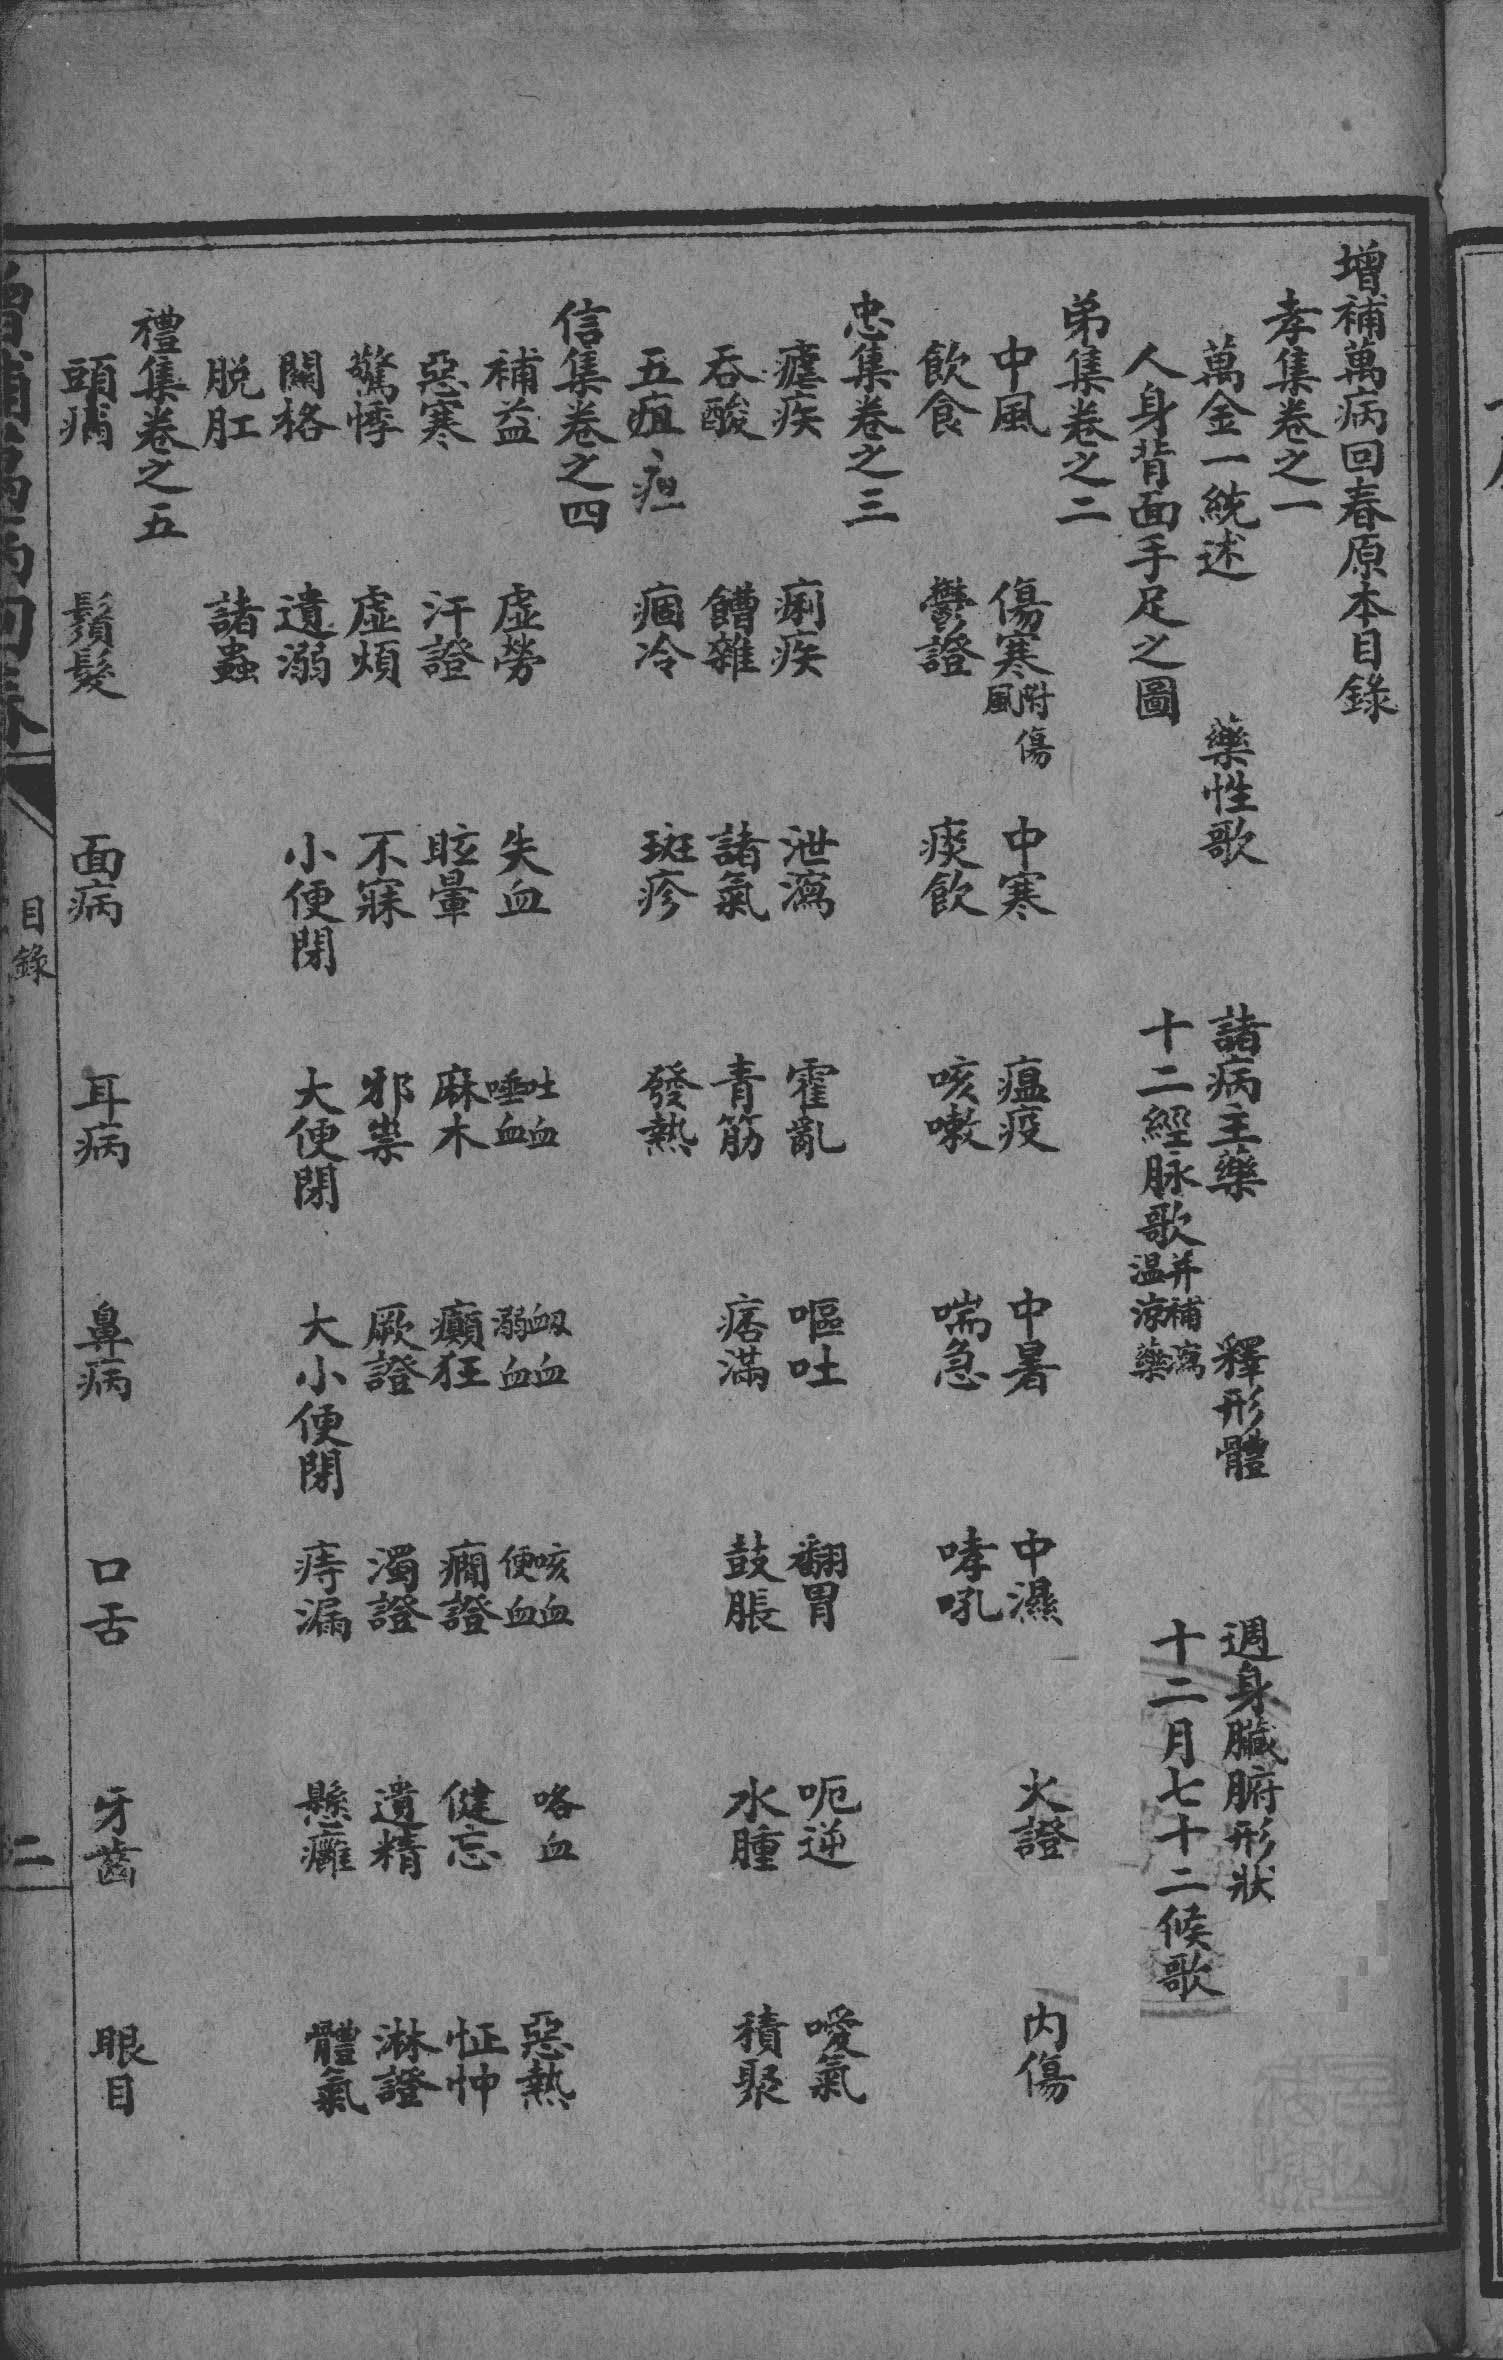 增補萬病回春原本目錄
孝集卷之一
萬金一統述 藥性歌 諸病主藥 釋形體 週身臟腑形狀
人身背面手足之圖 十二經脉歌 并補瀉温涼藥 十二月七十二候歌
弟集卷之二
中風 傷寒 附傷風 中寒 瘟疫 中暑 中濕 火證 內傷
飲食 鬱證 痰飲 咳嗽 喘急 哮吼
忠集卷之三
瘧疾 痢疾 泄瀉 霍亂 嘔吐 翻胃 呃逆 噯氣
吞酸 饐雜 諸氣 青筋 痞滿 鼓脹 水腫 積聚
五疸 疸 痼冷 斑疹 發熱
信集卷之四
補益 虛勞 失血 吐血 唾血 衄血 溺血 咳血 便血 咯血 惡熱
惡寒 汗證 眩暈 麻木 癲狂 癇證 健忘 怔忡
驚悸 虛煩 不寐 邪祟 厥證 濁證 遺精 淋證
關格 遺溺 小便閉 大便閉 大小便閉 痔漏 懸癰 體氣
脱肛 諸蟲
禮集卷之五
頭痛 鬚髮 面病 耳病 鼻病 口舌 牙齒 眼目
增補萬病回春 目錄 二